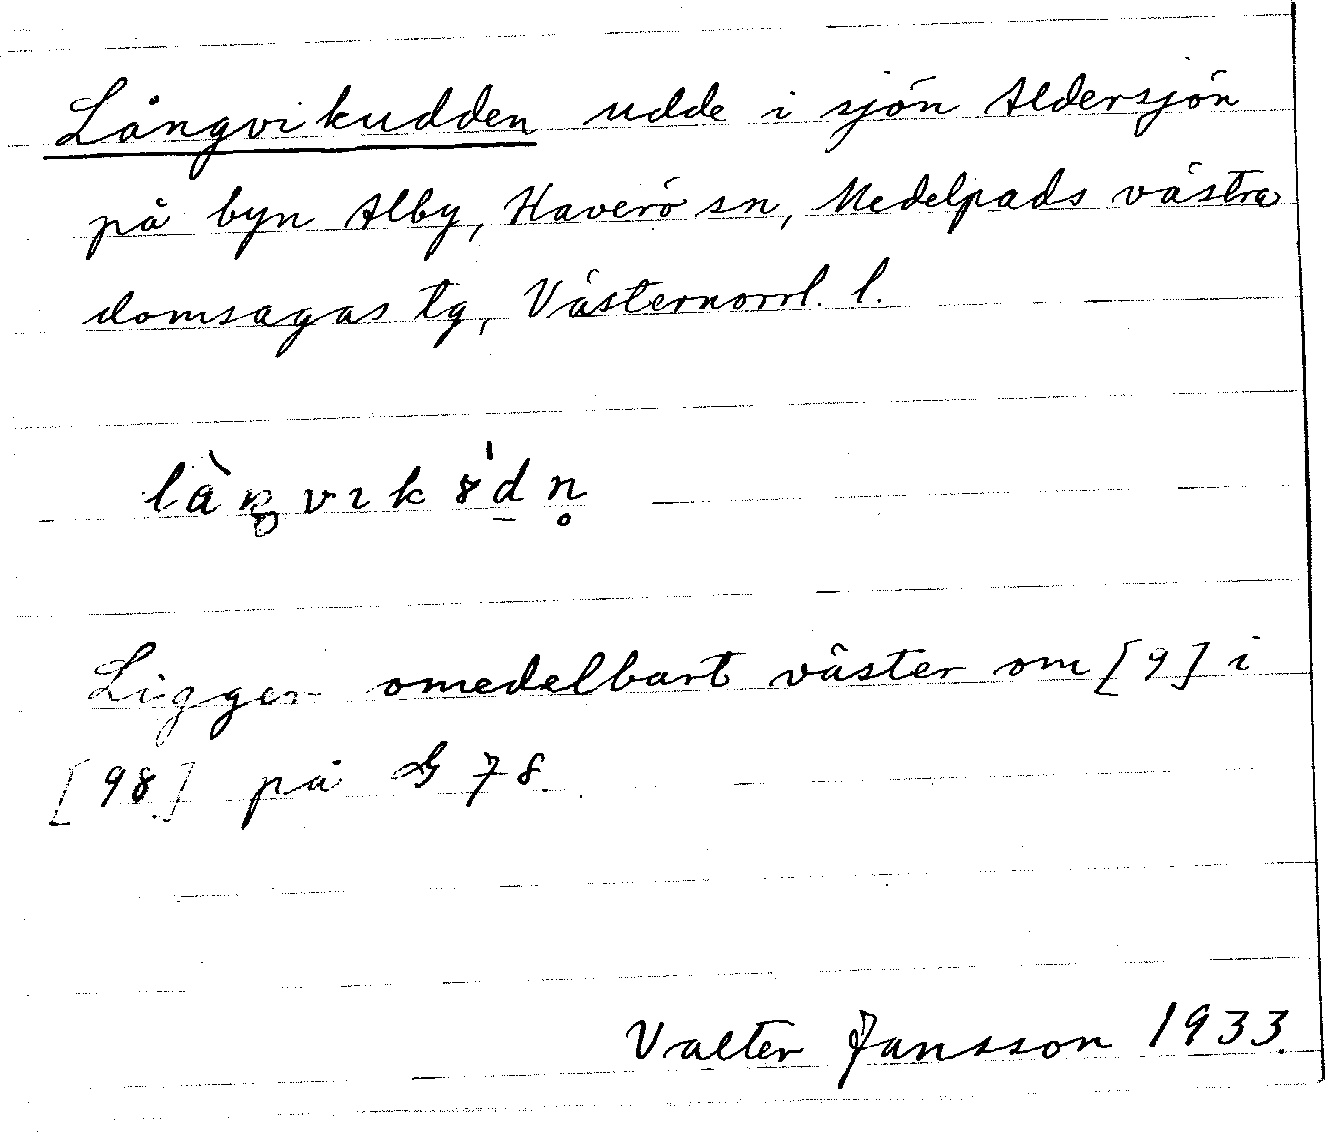 Långvikudden udde i sjön Aldersjön
på byn Alby, Haverö sn, Medelpads västra
domsagas tg, Västernorrl. l.
Ligger omedelbart väster om [9] i
[98] på G 78.
Valter Jansson 1933.